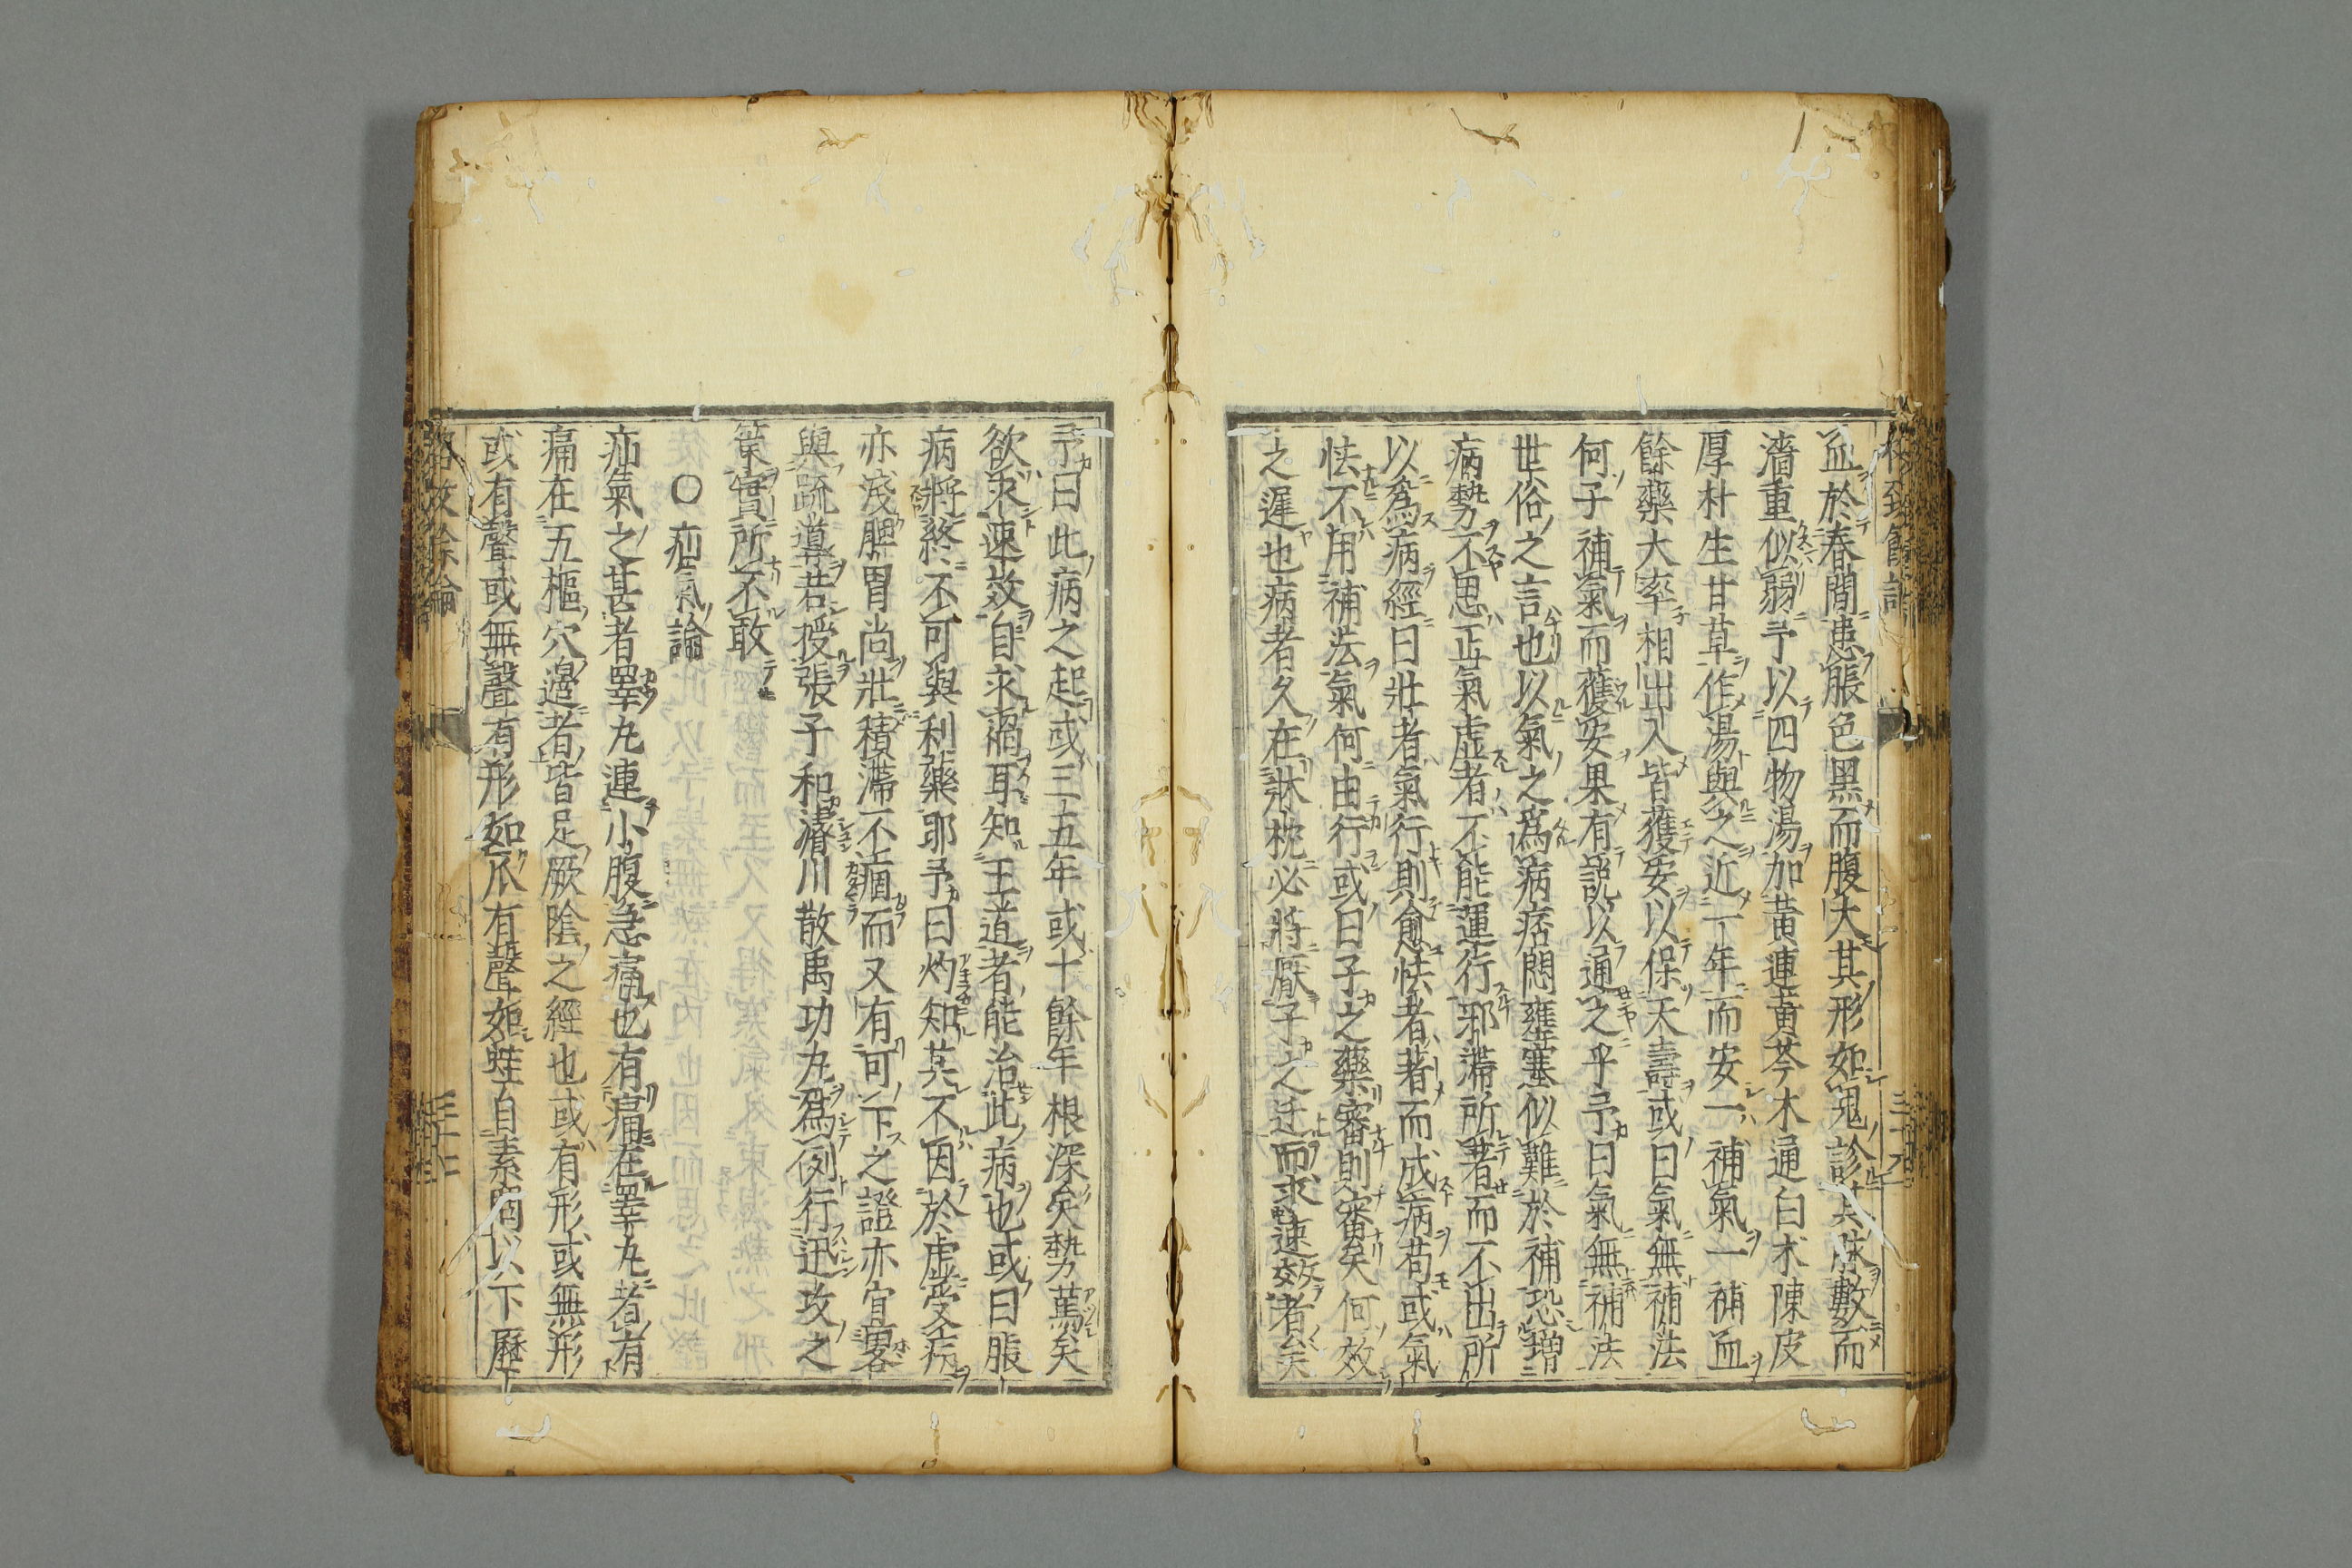 血於春間患脹色黑而腹大其形如鬼診其脉數而
濇重似弱予以四物湯加黃連黃芩木通白朮陳皮
厚朴生甘草作湯與之近一年而安一補氣一補血
餘藥大率相出入皆獲安以保天壽或曰氣無補法
何子補氣而獲安果有說以通之乎予曰氣無補法
世俗之言也以氣之爲病痞悶壅塞似難於補恐增
病勢不思正氣虛者不能運行邪滯所著而不出所
以爲病經曰壯者氣行則愈怯者著而成病苟或氣
怯不用補法氣何由行或曰子之藥審則審矣何效
之遲也病者久在牀枕必將厭子之迂而求速效者矣
予曰此病之起或三五年或十餘年根深矣勢篤矣
欲求速效自求禍耳知王道者能治此病也或曰脹
病將終不可與利藥耶予曰灼知其不因於虛受病
亦淺脾胃尚壯積滯不痼而又有可下之證亦宜畧
與疏導若授張子和濬川散禹功丸爲例行迅攻之
策實所不敢
○疝氣論
疝氣之甚者睪丸連小腹急痛也有痛在睪丸者有
痛在五樞穴邊者皆足厥陰之經也或有形或無形
或有聲或無聲有形如瓜有聲如蛙自素問以下歷
格致餘論
三十二